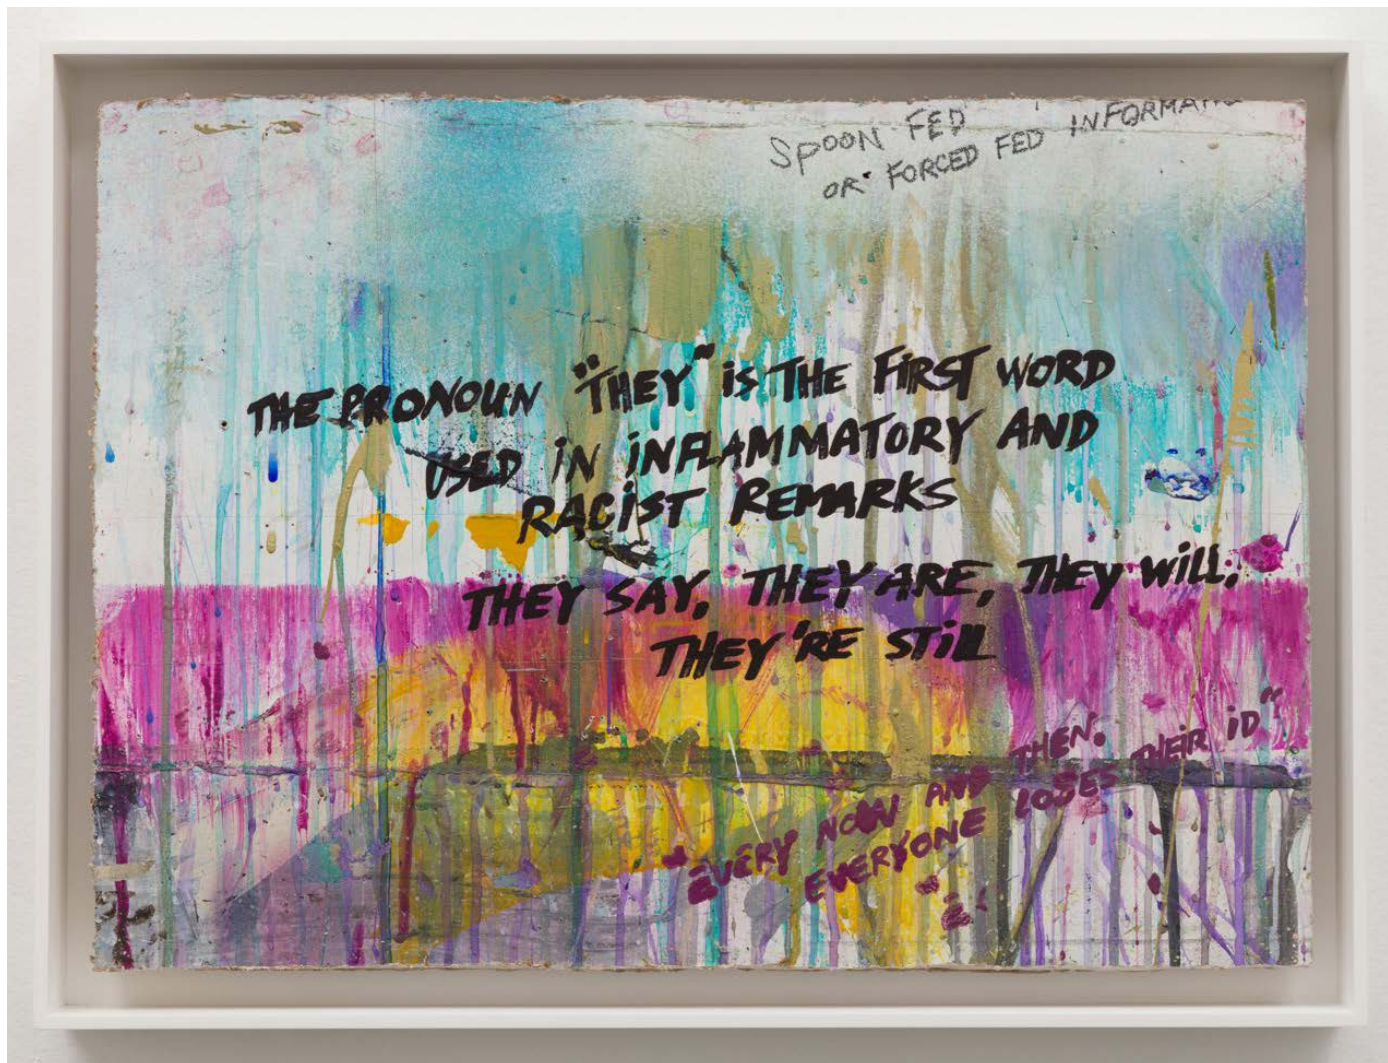 SPOON FED
OR FORCED FED
THE PRONOUN "THEY" iS THE FIRST WORD
USED iN iNFLAMMATORY AND
RACiST REMARKS
THEY SAY, THEY ARE, THEY WiLL,
THEY'RE STiLL
"EVERY NOW AND THEN.
EVERYONE LOSES THEIR iD"